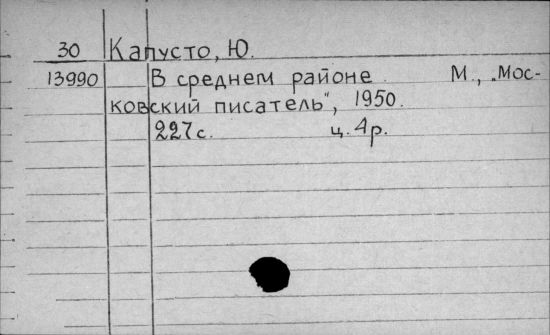 30 Капусто, Ю.
13990 В среднем районе. М., „Мос-
ковский писатель", 1950.
227 с. ц. 4 р.